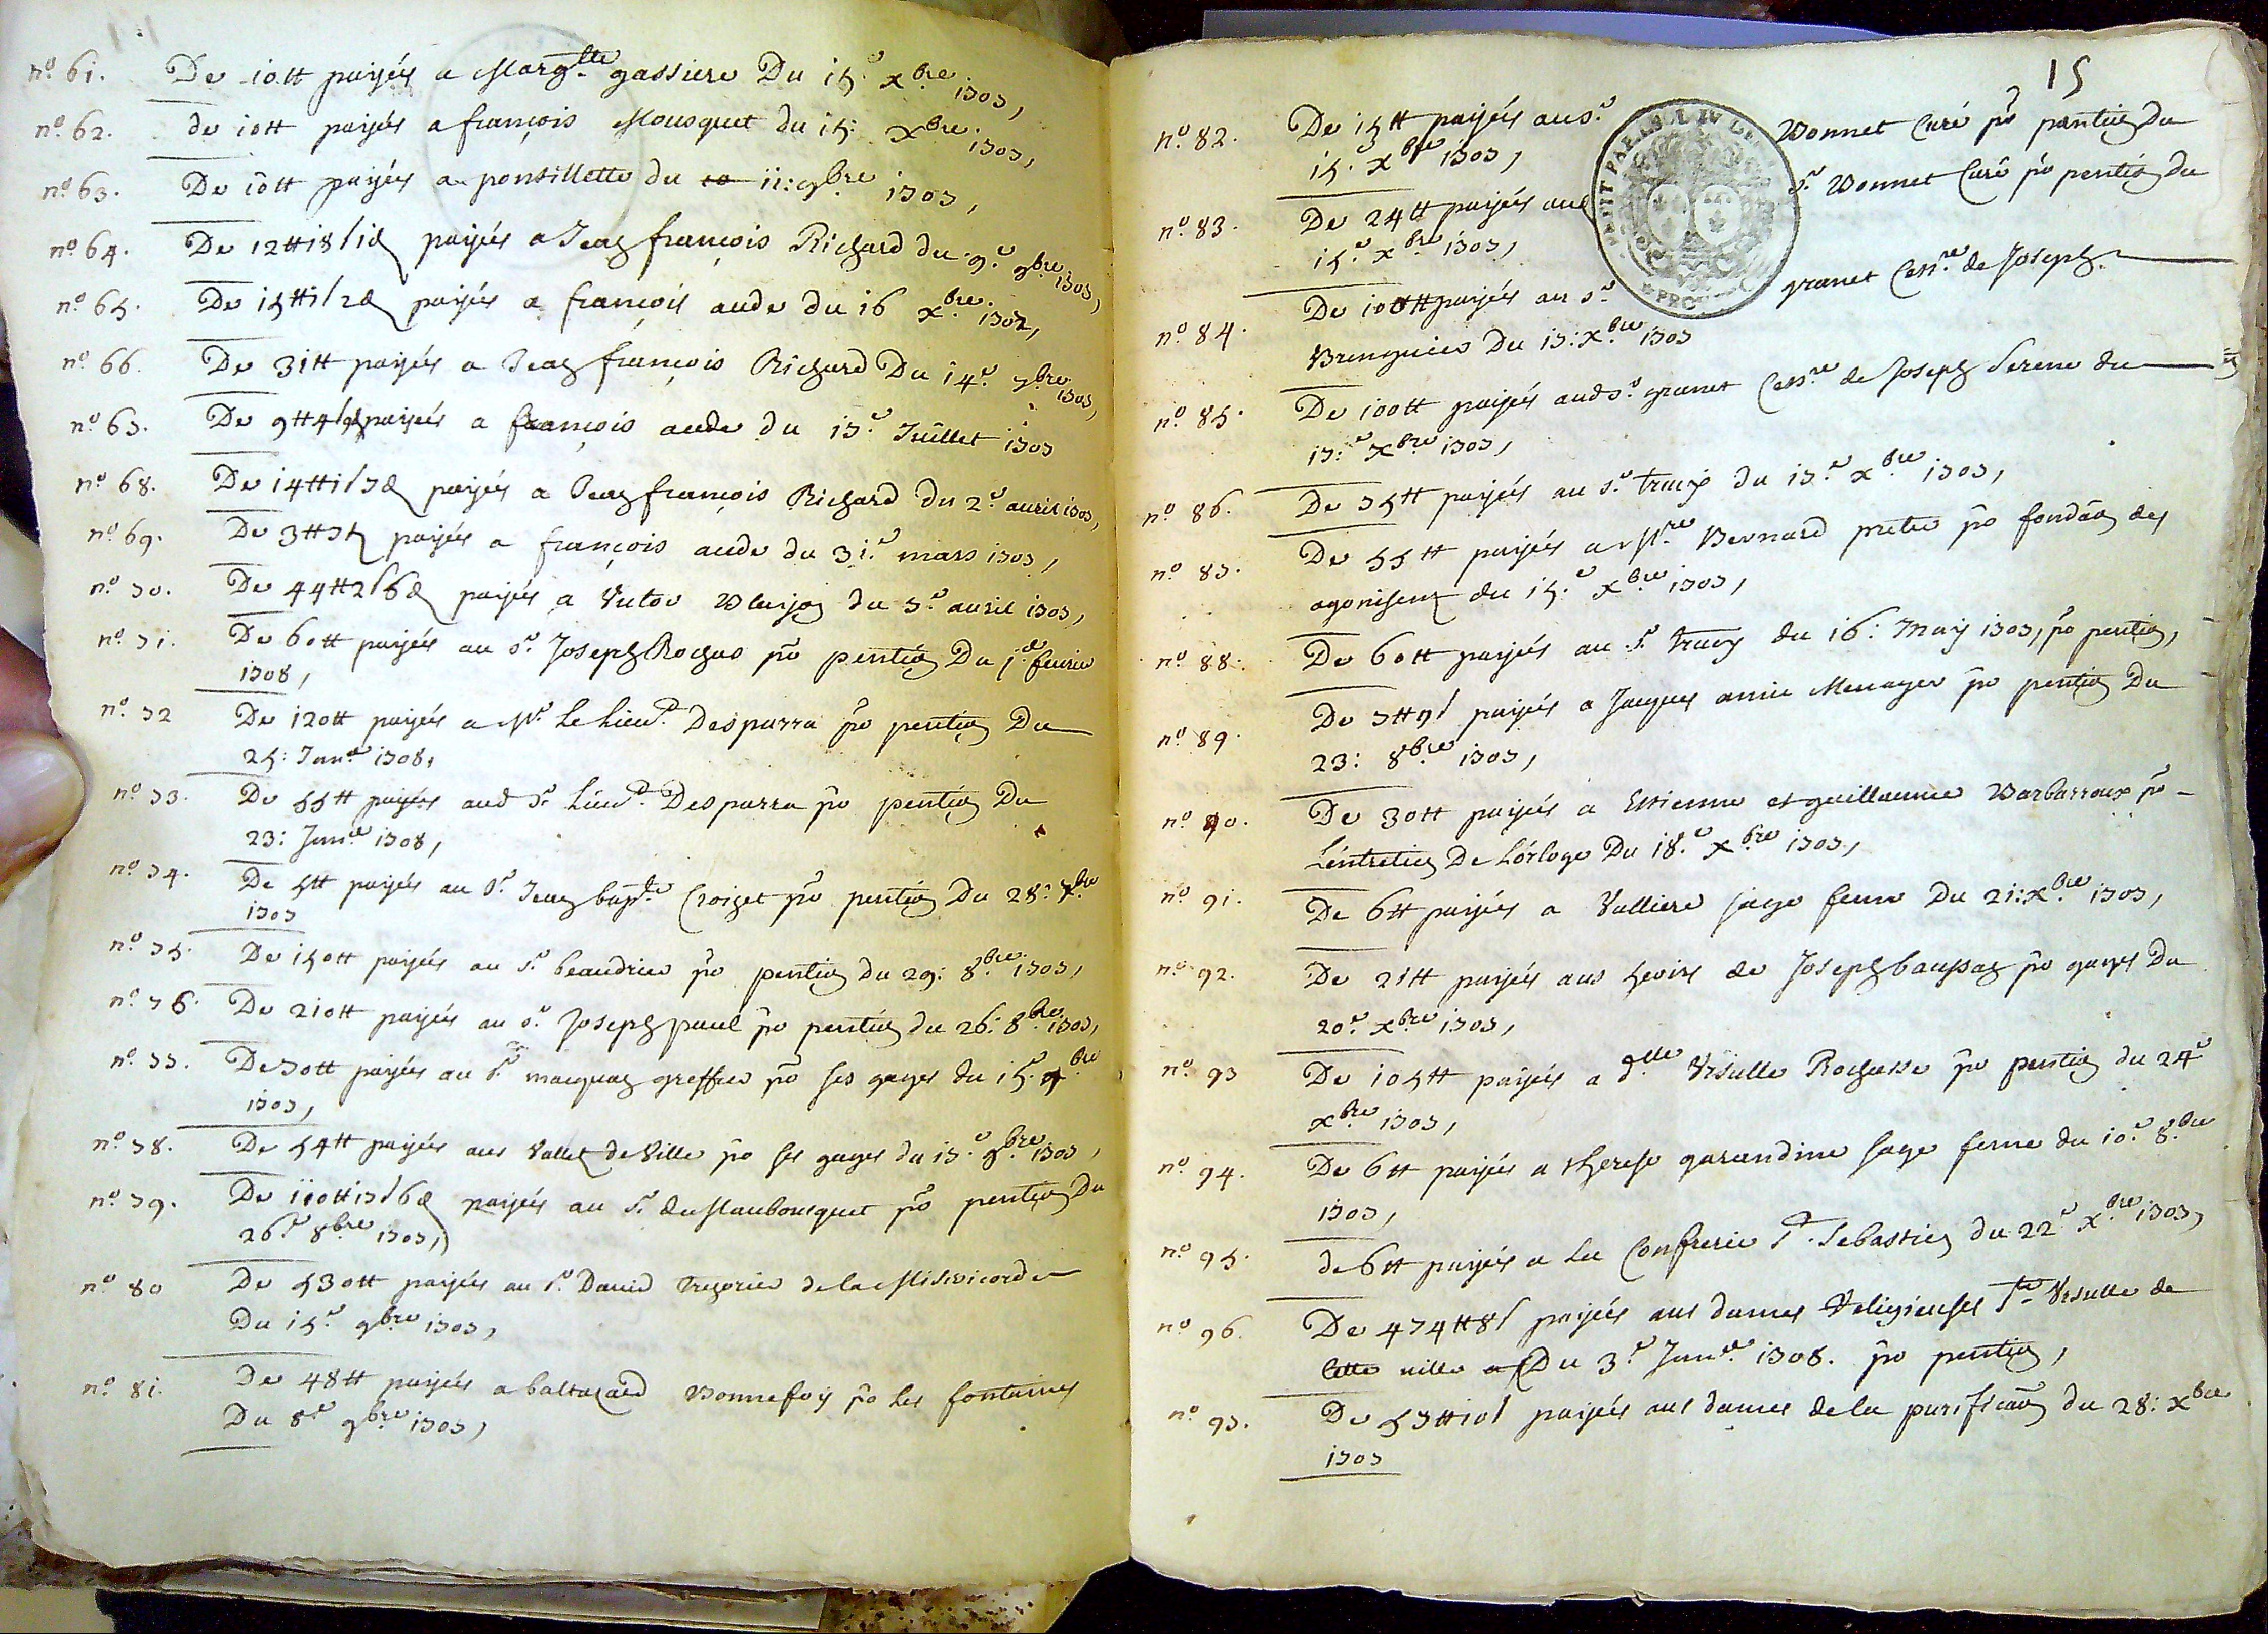 n.º 61. De 10tt payés a Marg.tte gassiere Du 15.e xbre 1707,
n.º 62. de 10tt payés a françois Mousquet du 15: xbre. 1707,
n.º 63. De 10tt payés a ponsillette du 11: 9bre 1707,
n.º 64. De 12tt18s1d payés a Jean françois Richard du 9.e 9bre 1707,
n.º 65. De 15tt1s2d payés a françois aude du 16 xbre. 1707,
n.º 66. De 31tt payés a Jean françois Richard Du 14.e 7bre 1707,
n.º 67. De 9tt4s9d payés a françois aude du 17.e Juillet 1707
n.º 68. De 14tt1s7d payés a Jean françois Richard du 2.e auril 1707,
n.º 69. De 3tt7s payés a françois aude du 31.e mars 1707,
n.º 70. De 44tt2s6d payés a Victor Blanjon du 7.e auril 1707,
n.º 71. De 60tt payés au s.r Joseph Rochas po pention Du 1.er feurier
1708,
n.º 72 De 120tt payés a Mr. Le Lieut. Desparra po pention Du
25: Janer 1708,
n.º 73. De 55tt payés aud sr. Lieut. Desparra po pention Du
23: Janer 1708,
n.º 74. De 5tt payés au Sr. Jean bapte. Croizet po pention Du 28: xbre
1707
n.º 75. De 150tt payés au Sr. beaudrier po pention du 29: 8bre. 1707,
n.º 76. De 210tt payés au sr. Joseph paul po pention du 26: 8bre. 1707,
n.º 77. De 70tt payés au Sr. macquan greffier po ses gages du 15.e 9bre
1707,
n.º 78. De 54tt payés aux Vallet de Ville po ses gages du 17.e 9bre. 1707,
n.º 79. De 110tt17s6d payés au Sr. du Maubousquet po pention Du
26.e 8bre 1707,
n.º 80 De 530tt payés au Sr. Dauid tresorier de la Misericorde
Du 15.e 9bre 1707,
n.º 81. De 48tt payés a baltazard Bonnefoy po les fontaines
Du 8.e 9bre 1707,
15
n.º 82. De 15tt payés au s.r Bonnet Curé po pention du
15. xbre 1707,
n.º 83. De 24tt payés aud s.r Bonnet Curé po pention du
15.e xbre 1707,
n.º 84. De 100tt payés au s.r granet Cessre de Joseph
Brunguier Du 17: xbre 1707
n.º 85. De 100tt payés aud s.r granet Cessre de Joseph Serene du
17:e xbre 1707,
n.º 86. De 75tt payés au s.r trucy du 17.e xbre 1707,
n.º 87. De 55tt payés a Mre Bernard pretre po fondãon des
agonisens du 15.e xbre 1707,
n.º 88. De 60tt payés au Sr. trucy du 16: May 1707, po pention,
n.º 89. De 7tt9s payés a Jacques amic Menager po pention Du
23: 8bre 1707,
n.º 90. De 30tt payés a Estienne et guillaume Barbarroux po
L'entretien De L'orloge Du 18.e xbre 1707,
n.º 91. De 6tt payés a Valliere sage feme Du 21: xbre 1707,
n.º 92. De 21tt payés aux heoirs de Joseph baussan po gages Du
20.e xbre 1707,
n.º 93 De 105tt payés a dlle Vrsulle Rochasse po pention du 24e
xbre 1707,
n.º 94. De 6tt payés a therese garandine sage feme du 10.e 8bre
1707,
n.º 95. de 6tt payés a La Confrerie St. Sebastien du 22.e xbre 1707,
n.º 96. De 474tt8s payés aux dames Religieuses Ste Vrsulle de
cette ville Du 3.e Janer 1708. po pention,
n.º 97. De 57tt10s payés aux dames de la purificãon du 28: xbre
1707